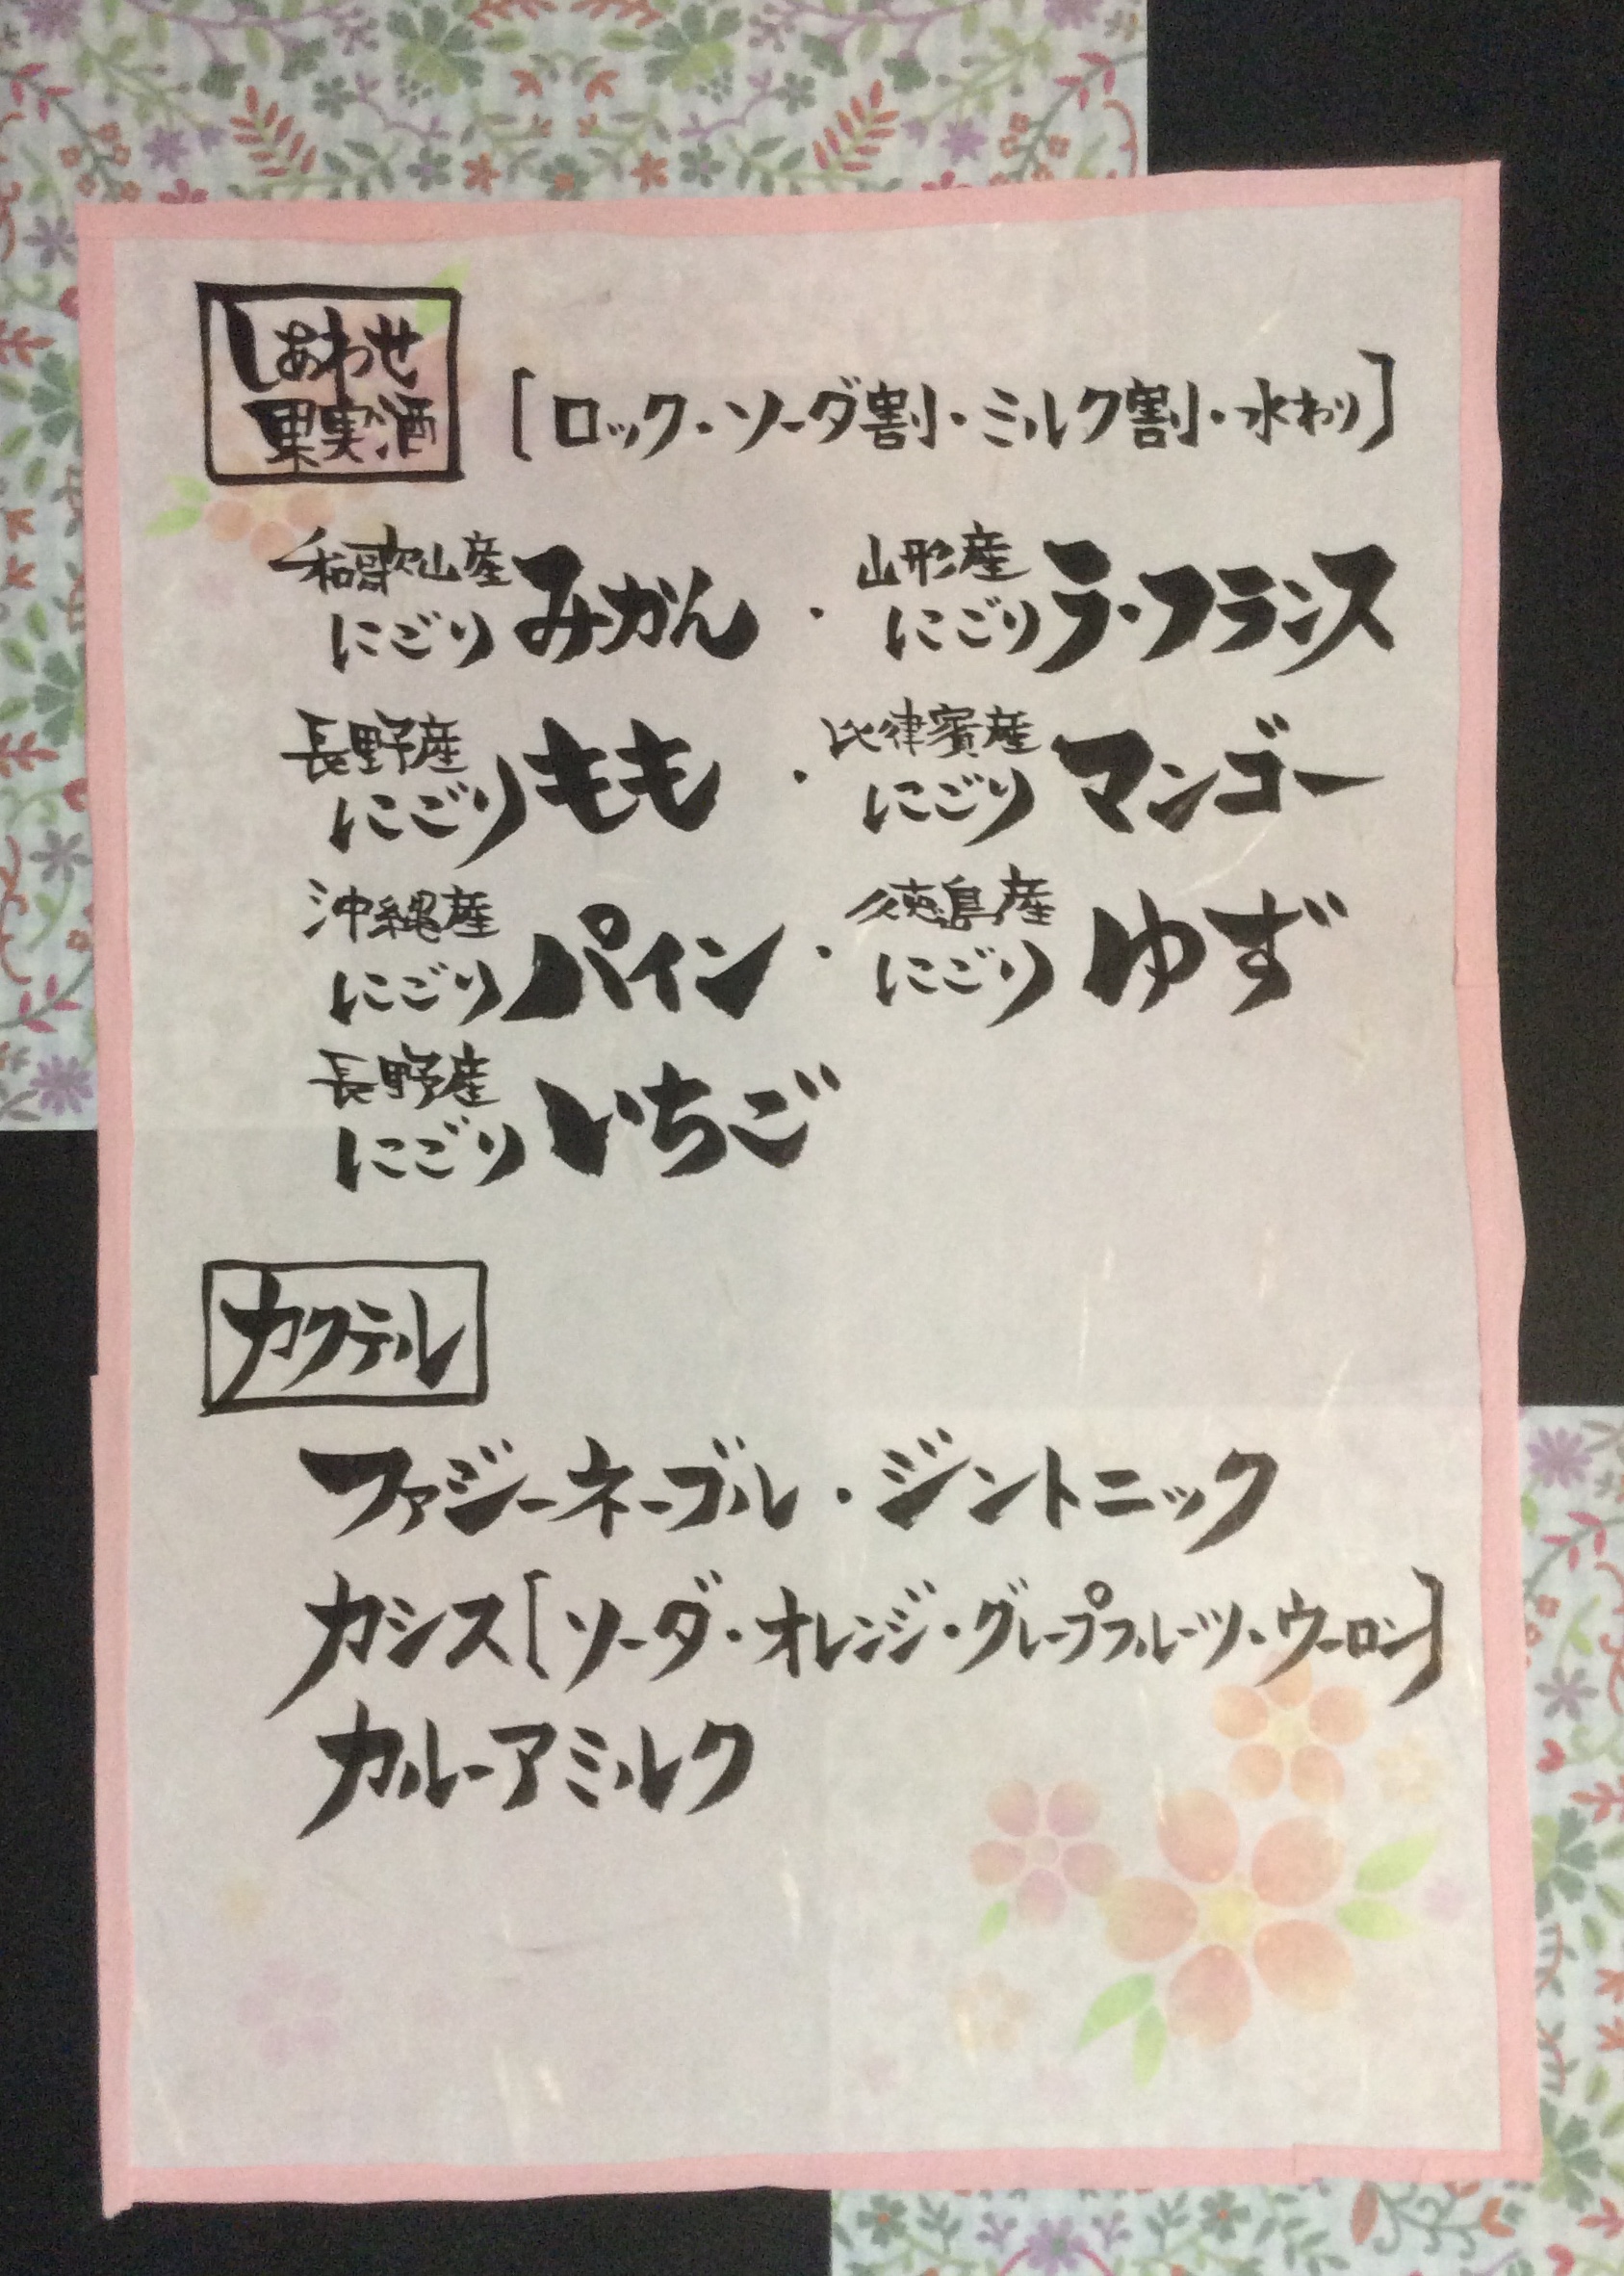 しあわせ
果実酒
[ロック・ソーダ割・ミルク割・水わり]
和歌山産にごりみかん・山形産にごりラ・フランス
長野産にごりもも・比律賓産にごりマンゴー
沖縄産にごりパイン・徳島産にごりゆず
長野産にごりいちご
カクテル
ファジーネーブル・ジントニック
カシス[ソーダ・オレンジ・グレープフルーツ・ウーロン]
カルーアミルク